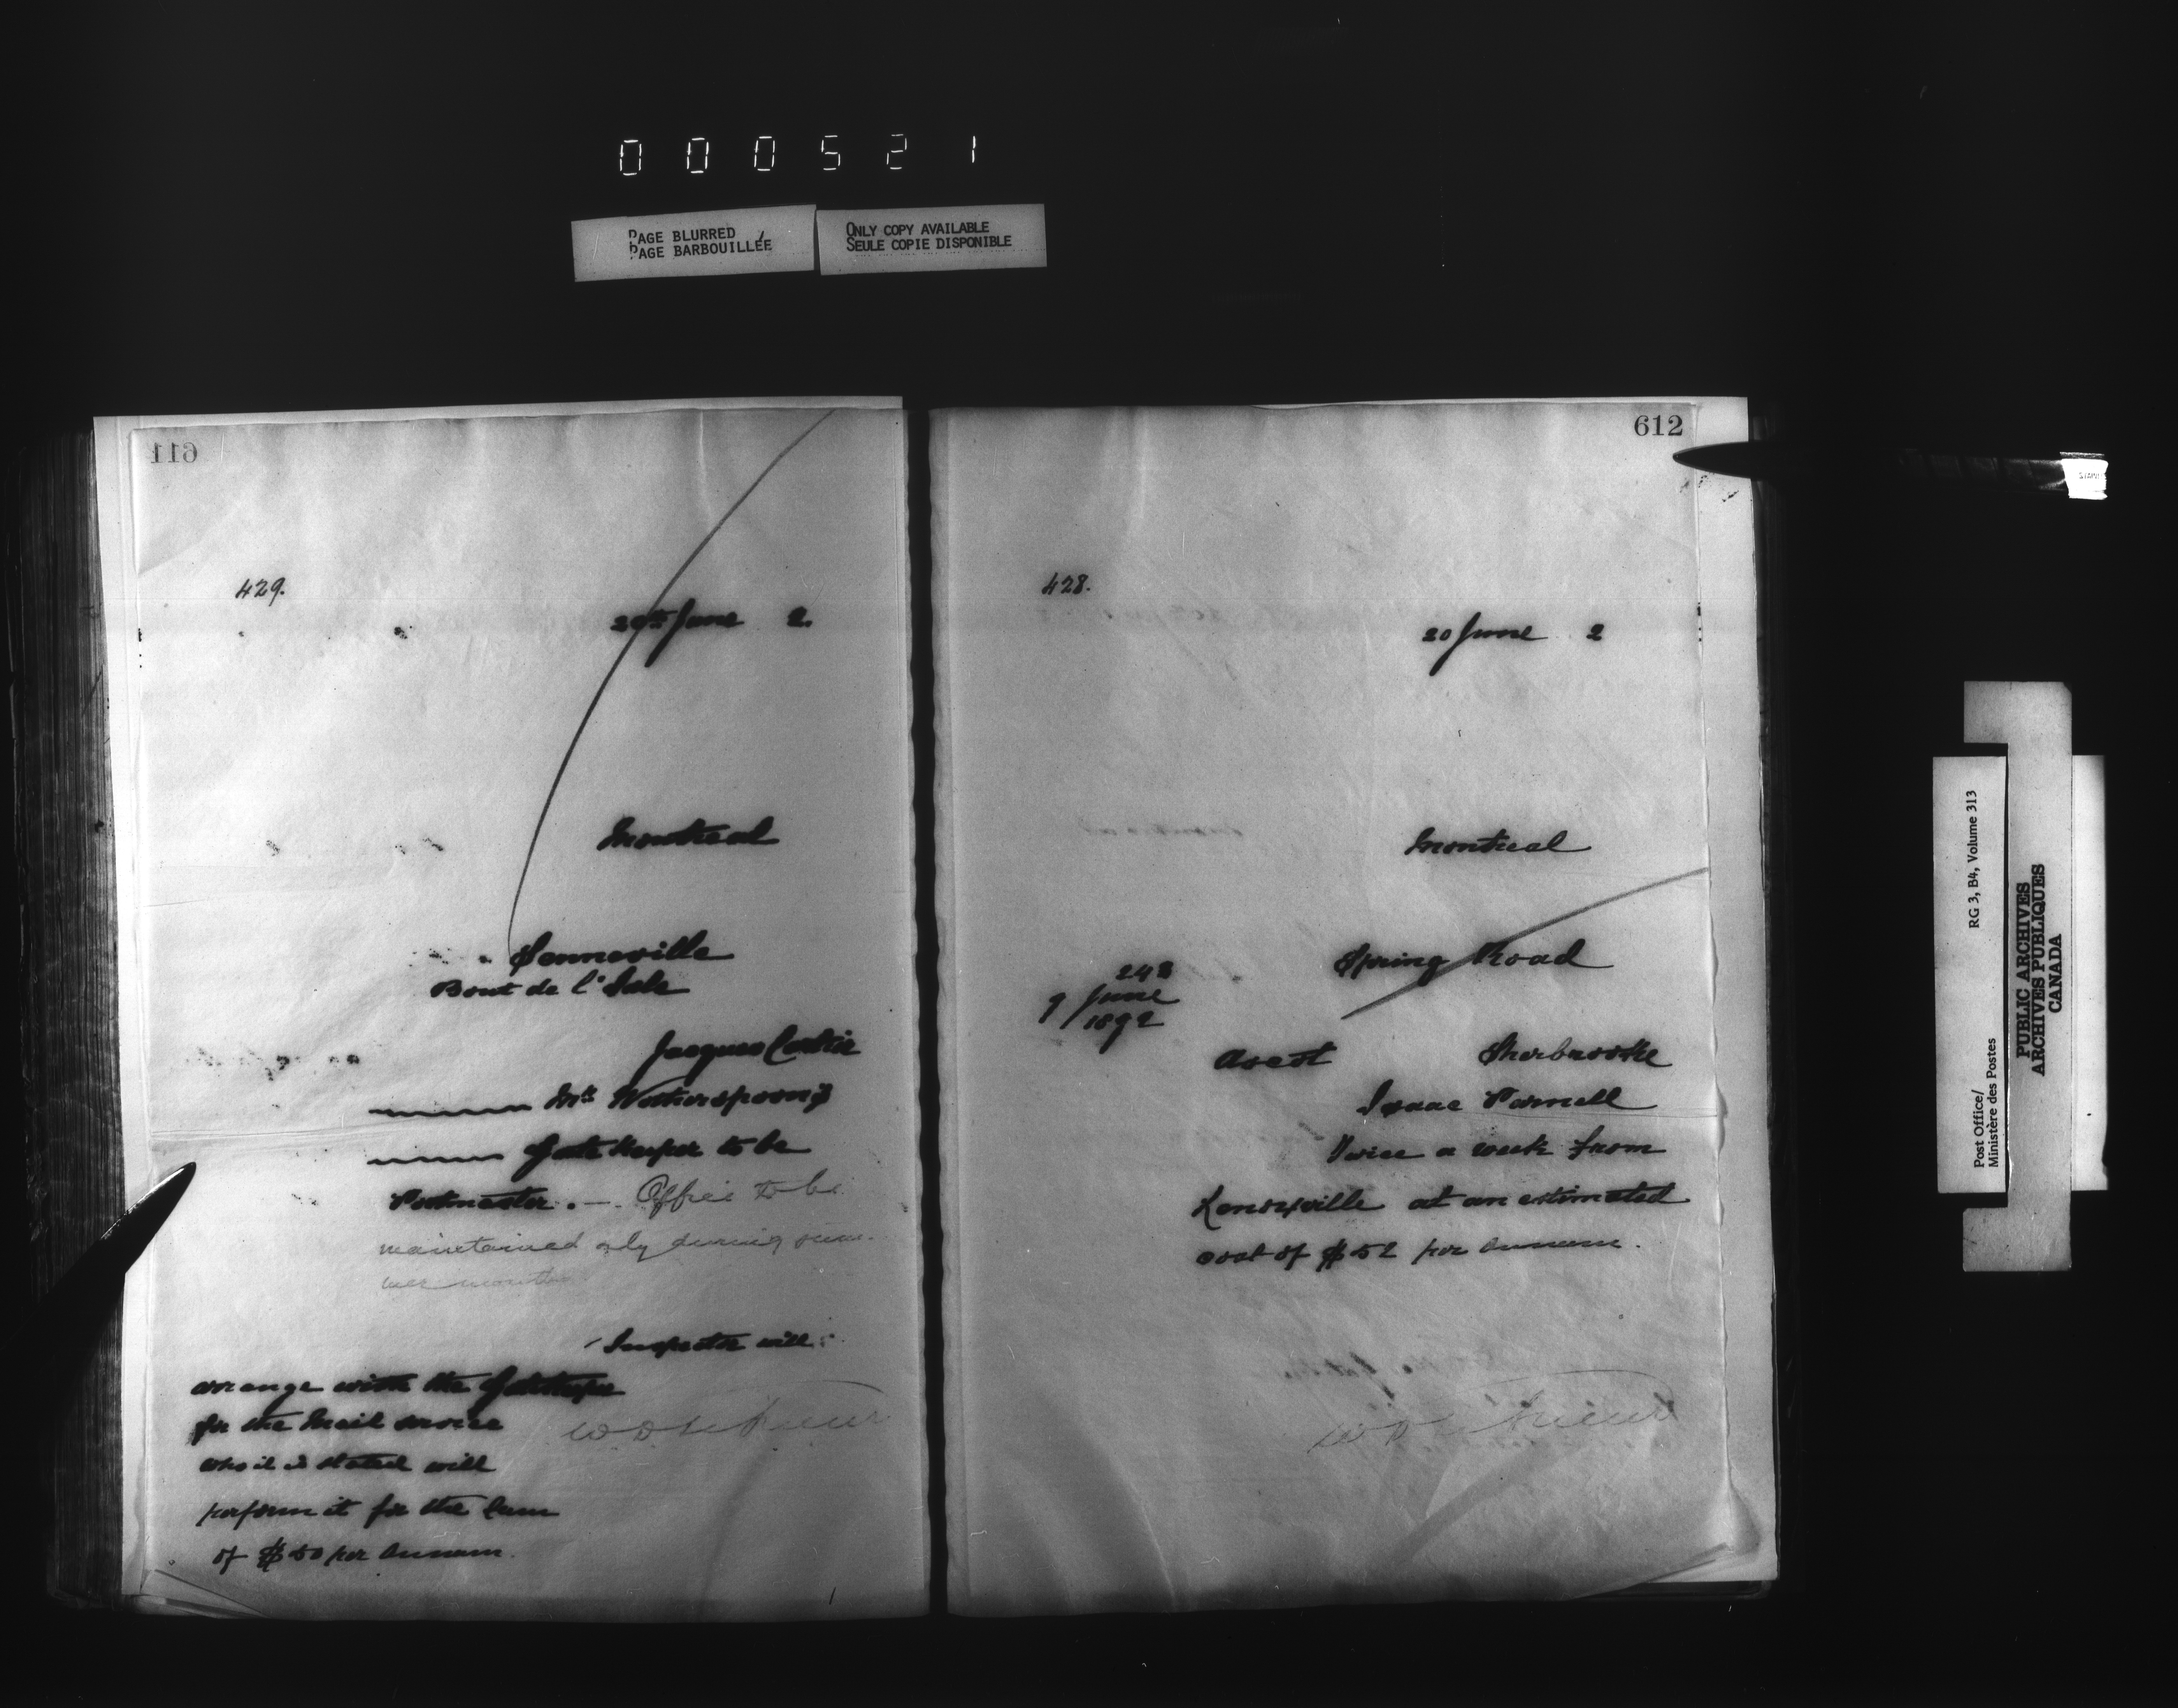 000521
PAGE BLURRED
PAGE BARBOUILLÉE
ONLY COPY AVAILABLE
SEULE COPIE DISPONIBLE
611
429.
20th June 2.
Montreal
Senneville
Bout de l'Isle
Jacques Cartier
Mr. Wotherspoon's
Gate Keeper to be
Postmaster. — Office to be
maintained only during sum-
mer months
Inspector will
arrange with the Gatekeeper
for the Mail service
who it is stated will
perform it for the sum
of $50 per annum.
612
428.
20 June 2
Montreal
Spring Road
248
9 June
1892
Ascot Sherbrooke
Isaac Parnell
Twice a week from
Lennoxville at an estimated
cost of $52 per annum.
Post Office/
Ministère des Postes
RG 3, B4, Volume 313
PUBLIC ARCHIVES
ARCHIVES PUBLIQUES
CANADA